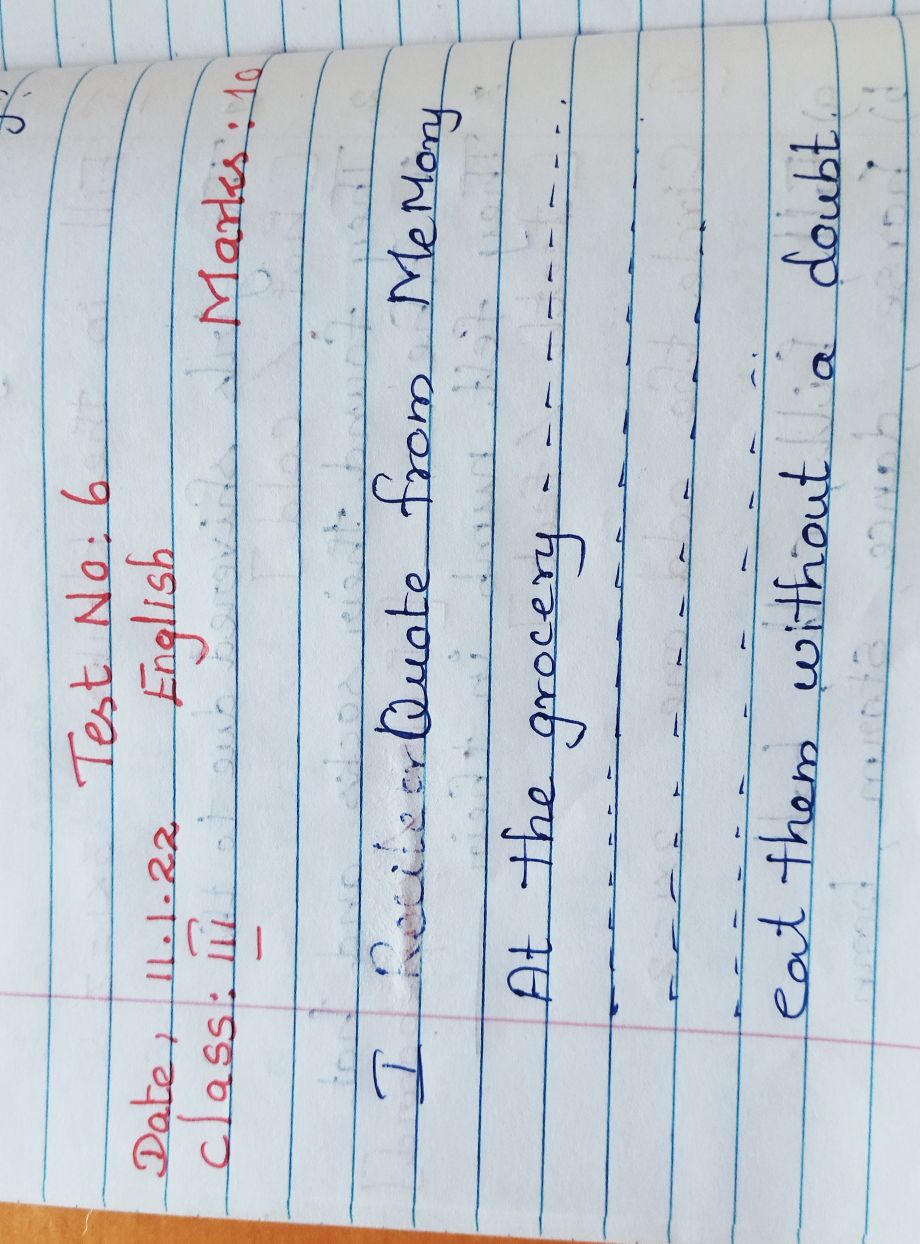 Test No: 6
Date: 11.1.22 English
Class: III Marks: 10
I Recite or Quote from MeMory
At the grocery - - - - - - - - - - - - -
- - - - - - - - - - - - - - - -
- - - - - - - - - - - - - -
- - - - - - - - - - - -
eat them without a doubt.